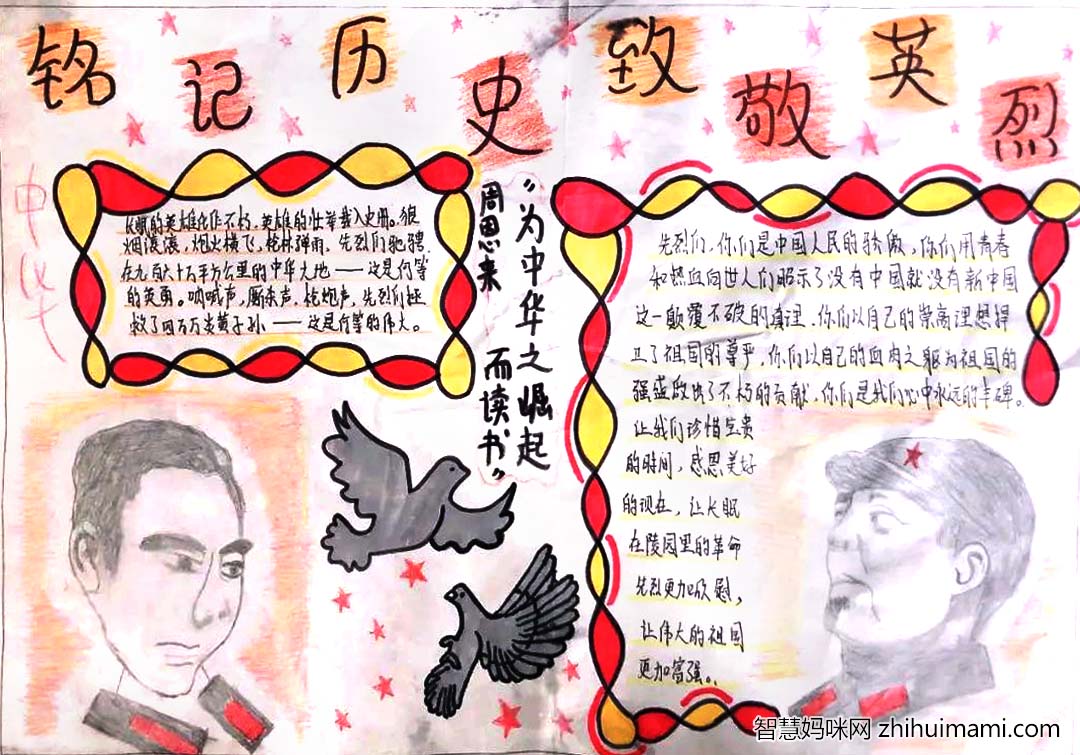 铭记历史致敬英烈
长眠的英雄化作不朽，英雄的壮举载入史册。狼
烟滚滚，炮火横飞，枪林弹雨，先烈们驰骋
在九百六十万平方公里的中华大地——这是何等
的英勇。呐喊声，厮杀声，枪炮声，先烈们拯
救了四万万炎黄子孙——这是何等的伟大。
“为中华之崛起
而读书”
周恩来
先烈们，你们是中国人民的骄傲，你们用青春
和热血向世人们昭示了没有中国就没有新中国
这一颠爱不破的真理，你们以自己的崇高理想捍
卫了祖国的尊严，你们以自己的血肉之躯为祖国的
强盛做出了不朽的贡献，你们是我们心中永远的丰碑。
让我们珍惜宝贵
的时间，感恩美好
的现在，让长眠
在陵园里的革命
先烈更加欣慰，
让伟大的祖国
更加富强。
智慧妈咪网 zhihuimami.com